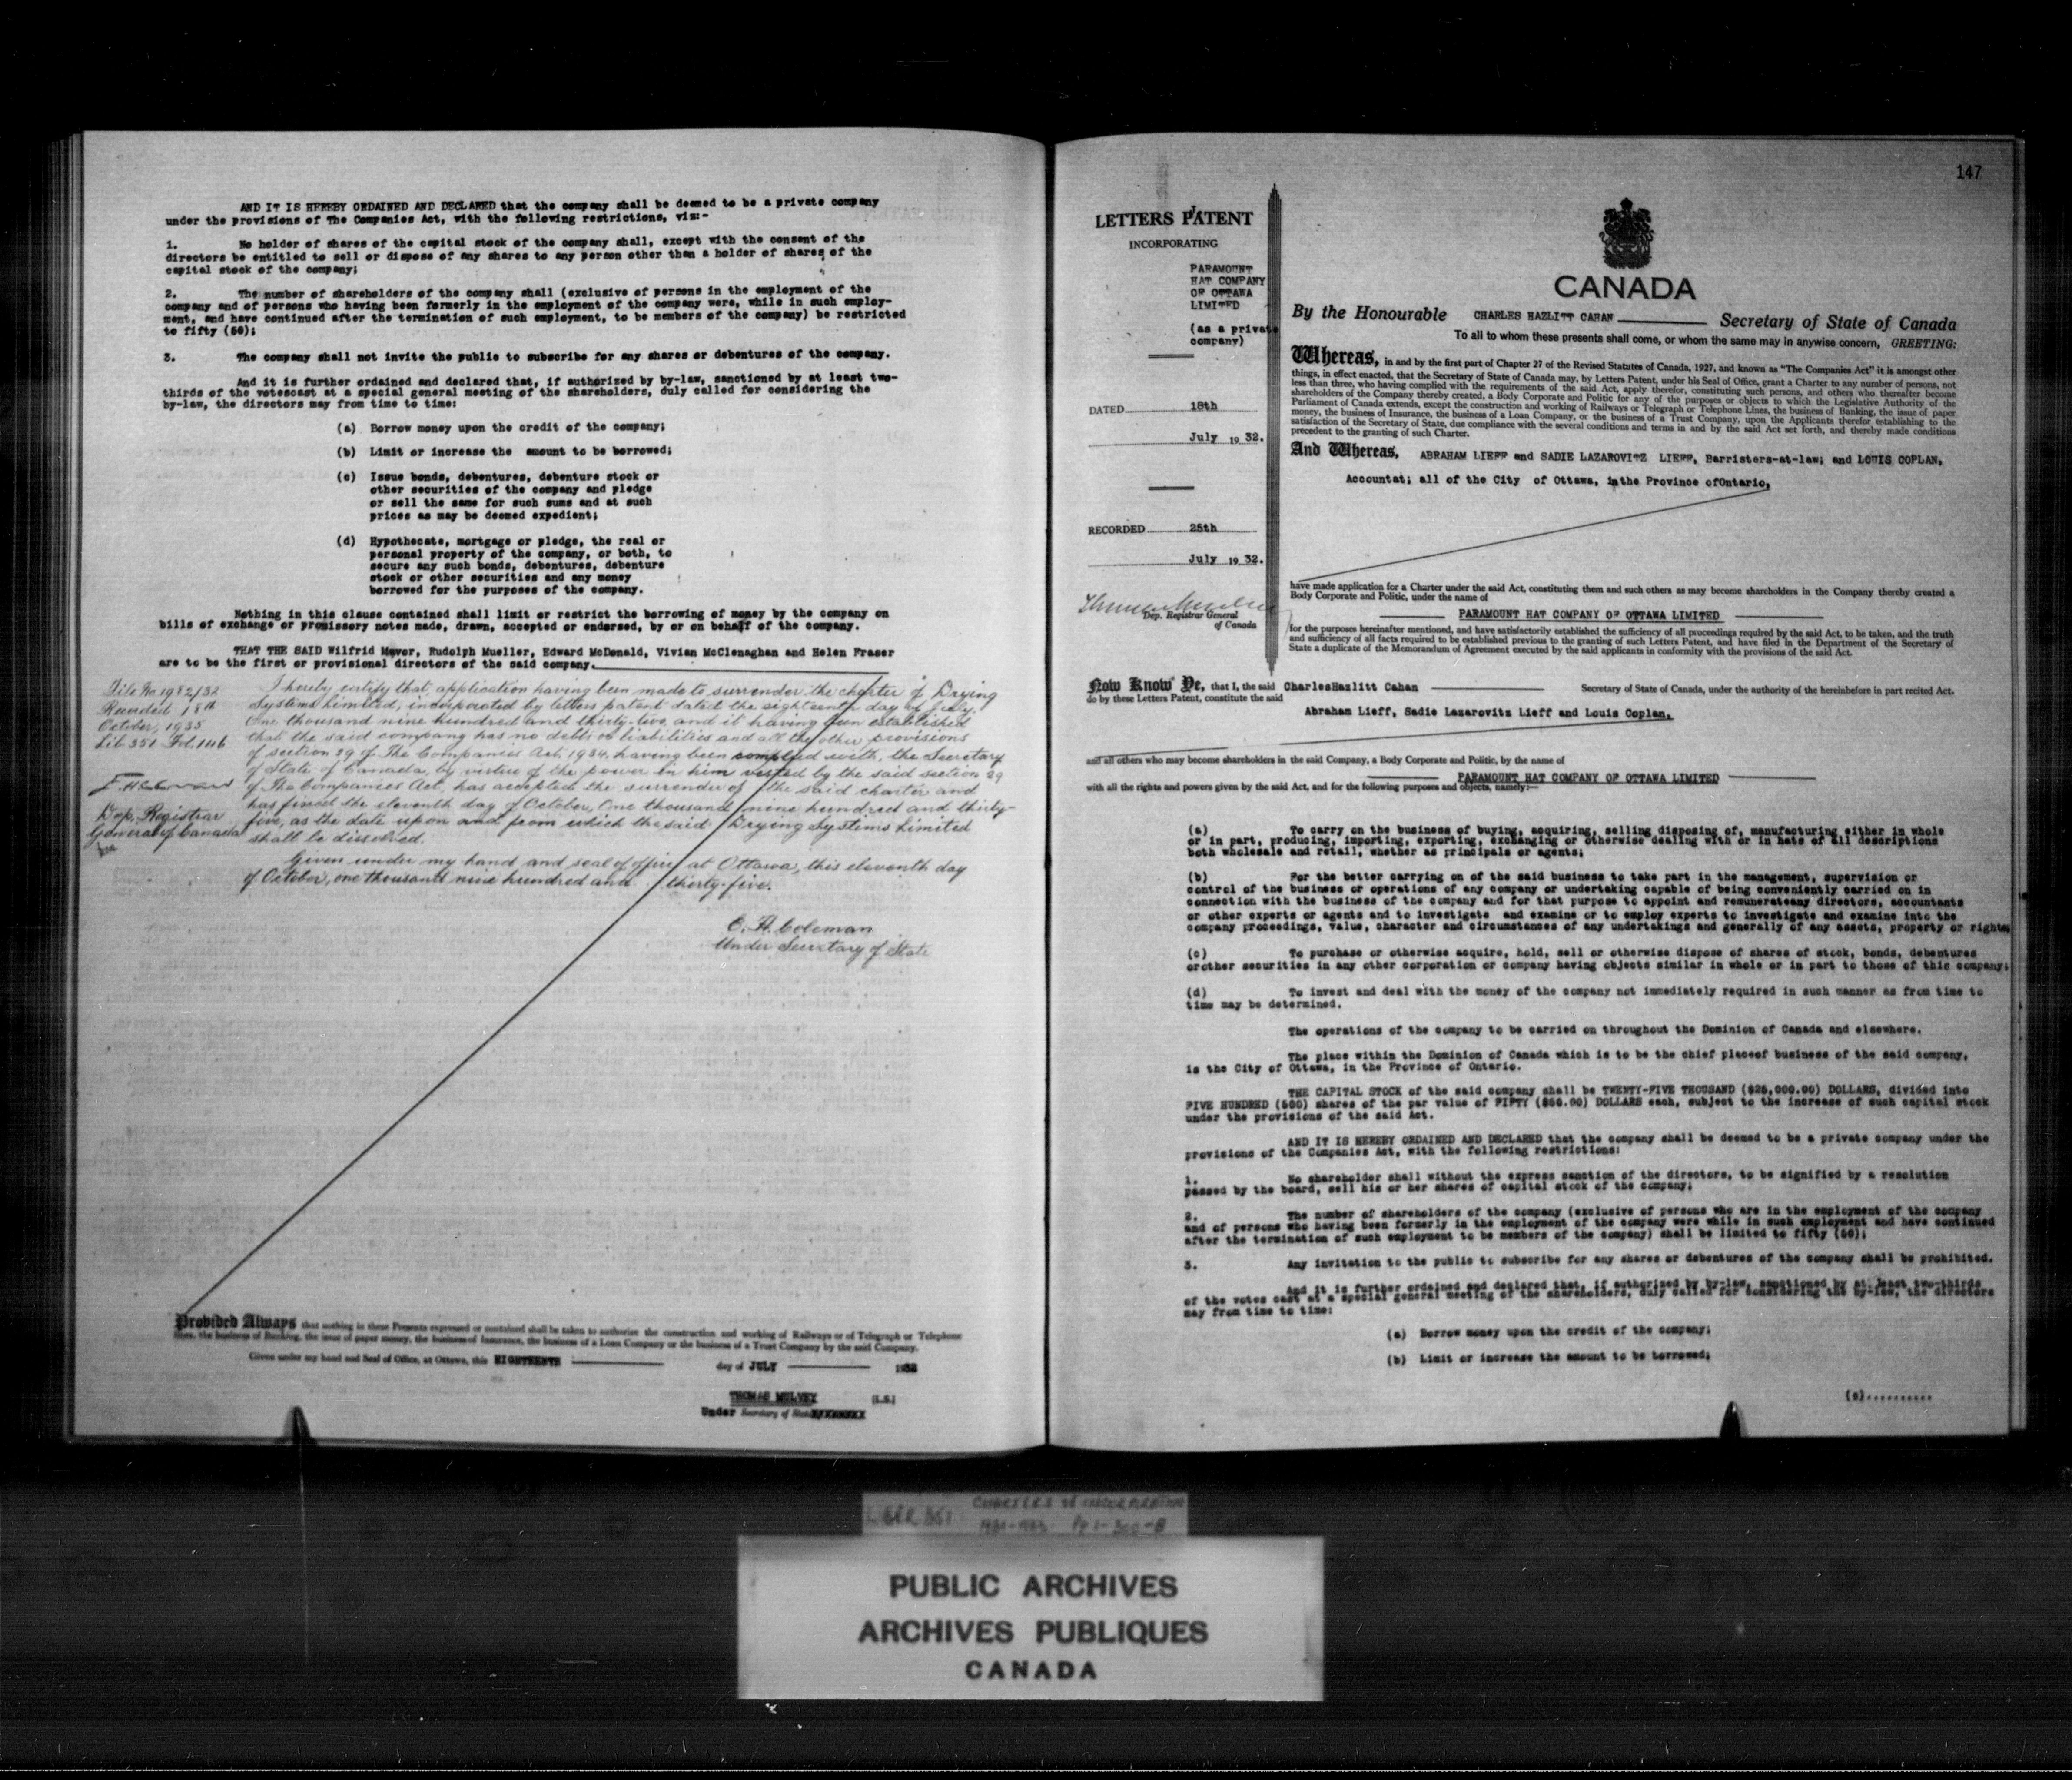 AND IT IS HEREBY ORDAINED AND DECLARED that the company shall be deemed to be a private company
under the provisions of The Companies Act, with the following restrictions, viz:-
1. No holder of shares of the capital stock of the company shall, except with the consent of the
directors be entitled to sell or dispose of any shares to any person other than a holder of shares of the
capital stock of the company;
2. The number of shareholders of the company shall (exclusive of persons in the employment of the
company and of persons who having been formerly in the employment of the company were, while in such employ-
ment, and have continued after the termination of such employment, to be members of the company) be restricted
to fifty (50);
3. The company shall not invite the public to subscribe for any shares or debentures of the company.
And it is further ordained and declared that, if authorized by by-law, sanctioned by at least two-
thirds of the votescast at a special general meeting of the shareholders, duly called for considering the
by-law, the directors may from time to time:
(a) Borrow money upon the credit of the company;
(b) Limit or increase the amount to be borrowed;
(c) Issue bonds, debentures, debenture stock or
other securities of the company and pledge
or sell the same for such sums and at such
prices as may be deemed expedient;
(d) Hypothecate, mortgage or pledge, the real or
personal property of the company, or both, to
secure any such bonds, debentures, debenture
stock or other securities and any money
borrowed for the purposes of the company.
Nothing in this clause contained shall limit or restrict the borrowing of money by the company on
bills of exchange or promissory notes made, drawn, accepted or endorsed, by or on behalf of the company.
THAT THE SAID Wilfrid Mavor, Rudolph Mueller, Edward McDonald, Vivian McClenaghan and Helen Fraser
are to be the first or provisional directors of the said company.
File No 1982/32
Recorded 18th
October, 1935
Lib 351 Fol. 146
Dep. Registrar
General of Canada
I hereby certify that, application having been made to surrender the charter of Drying
Systems Limited, incorporated by letters patent dated the eighteenth day of July,
One thousand nine hundred and thirty-two, and it having been established
that the said company has no debts or liabilities and all the other provisions
of section 29 of The Companies Act, 1934, having been complied with, the Secretary
of State of Canada, by virtue of the power in him vested by the said section 29
of The Companies Act, has accepted the surrender of the said charter and
has fixed the eleventh day of October, One thousand nine hundred and thirty-
five, as the date upon and from which the said Drying Systems Limited
shall be dissolved.
Given under my hand and seal of office at Ottawa, this eleventh day
of October, one thousand nine hundred and thirty-five.
E. H. Coleman
Under Secretary of State
Provided Always that nothing in these Presents expressed or contained shall be taken to authorize the construction and working of Railways or of Telegraph or Telephone
lines, the business of Banking, the issue of paper money, the business of Insurance, the business of a Loan Company or the business of a Trust Company by the said Company.
Given under my hand and Seal of Office, at Ottawa, this EIGHTEENTH day of JULY 1932
THOMAS MULVEY [L.S.]
Under Secretary of State
147
LETTERS PATENT
INCORPORATING
PARAMOUNT
HAT COMPANY
OF OTTAWA
LIMITED
(as a private
company)
DATED 18th
July 1932.
RECORDED 25th
July 1932.
Dep. Registrar General
of Canada
CANADA
By the Honourable CHARLES HAZLITT CAHAN Secretary of State of Canada
To all to whom these presents shall come, or whom the same may in anywise concern, GREETING:
Whereas, in and by the first part of Chapter 27 of the Revised Statutes of Canada, 1927, and known as "The Companies Act" it is amongst other
things, in effect enacted, that the Secretary of State of Canada may, by Letters Patent, under his Seal of Office, grant a Charter to any number of persons, not
less than three, who having complied with the requirements of the said Act, apply therefor, constituting such persons, and others who thereafter become
shareholders of the Company thereby created, a Body Corporate and Politic for any of the purposes or objects to which the Legislative Authority of the
Parliament of Canada extends, except the construction and working of Railways or Telegraph or Telephone Lines, the business of Banking, the issue of paper
money, the business of Insurance, the business of a Loan Company, or the business of a Trust Company, upon the Applicants therefor establishing to the
satisfaction of the Secretary of State, due compliance with the several conditions and terms in and by the said Act set forth, and thereby made conditions
precedent to the granting of such Charter.
And Whereas, ABRAHAM LIEFF and SADIE LAZAROVITZ LIEFF, Barristers-at-law; and LOUIS COPLAN,
Accountat; all of the City of Ottawa, inthe Province ofOntario,
have made application for a Charter under the said Act, constituting them and such others as may become shareholders in the Company thereby created a
Body Corporate and Politic, under the name of
PARAMOUNT HAT COMPANY OF OTTAWA LIMITED
for the purposes hereinafter mentioned, and have satisfactorily established the sufficiency of all proceedings required by the said Act, to be taken, and the truth
and sufficiency of all facts required to be established previous to the granting of such Letters Patent, and have filed in the Department of the Secretary of
State a duplicate of the Memorandum of Agreement executed by the said applicants in conformity with the provisions of the said Act.
Now Know Ye, that I, the said CharlesHazlitt Cahan Secretary of State of Canada, under the authority of the hereinbefore in part recited Act,
do by these Letters Patent, constitute the said
Abraham Lieff, Sadie Lazarovitz Lieff and Louis Coplan,
and all others who may become shareholders in the said Company, a Body Corporate and Politic, by the name of
PARAMOUNT HAT COMPANY OF OTTAWA LIMITED
with all the rights and powers given by the said Act, and for the following purposes and objects, namely:—
(a) To carry on the business of buying, acquiring, selling disposing of, manufacturing either in whole
or in part, producing, importing, exporting, exchanging or otherwise dealing with or in hats of all descriptions
both wholesale and retail, whether as principals or agents;
(b) For the better carrying on of the said business to take part in the management, supervision or
control of the business or operations of any company or undertaking capable of being conveniently carried on in
connection with the business of the company and for that purpose to appoint and remunerateany directors, accountants
or other experts or agents and to investigate and examine or to employ experts to investigate and examine into the
company proceedings, value, character and circumstances of any undertakings and generally of any assets, property or rights;
(c) To purchase or otherwise acquire, hold, sell or otherwise dispose of shares of stock, bonds, debentures
orother securities in any other corporation or company having objects similar in whole or in part to those of this company;
(d) To invest and deal with the money of the company not immediately required in such manner as from time to
time may be determined.
The operations of the company to be carried on throughout the Dominion of Canada and elsewhere.
The place within the Dominion of Canada which is to be the chief placeof business of the said company,
is the City of Ottawa, in the Province of Ontario.
THE CAPITAL STOCK of the said company shall be TWENTY-FIVE THOUSAND ($25,000.00) DOLLARS, divided into
FIVE HUNDRED (500) shares of the par value of FIFTY ($50.00) DOLLARS each, subject to the increase of such capital stock
under the provisions of the said Act.
AND IT IS HEREBY ORDAINED AND DECLARED that the company shall be deemed to be a private company under the
provisions of the Companies Act, with the following restrictions:
1. No shareholder shall without the express sanction of the directors, to be signified by a resolution
passed by the board, sell his or her shares of capital stock of the company;
2. The number of shareholders of the company (exclusive of persons who are in the employment of the company
and of persons who having been formerly in the employment of the company were while in such employment and have continued
after the termination of such employment to be members of the company) shall be limited to fifty (50);
3. Any invitation to the public to subscribe for any shares or debentures of the company shall be prohibited.
And it is further ordained and declared that, if authorized by by-law, sanctioned by at least two-thirds
of the votes cast at a special general meeting of the shareholders, duly called for considering the by-law, the directors
may from time to time:
(a) Borrow money upon the credit of the company;
(b) Limit or increase the amount to be borrowed;
(c)..........
LIBER 351 CHARTERS OF INCORPORATION
1931-1933 Pp 1-300-B
PUBLIC ARCHIVES
ARCHIVES PUBLIQUES
CANADA